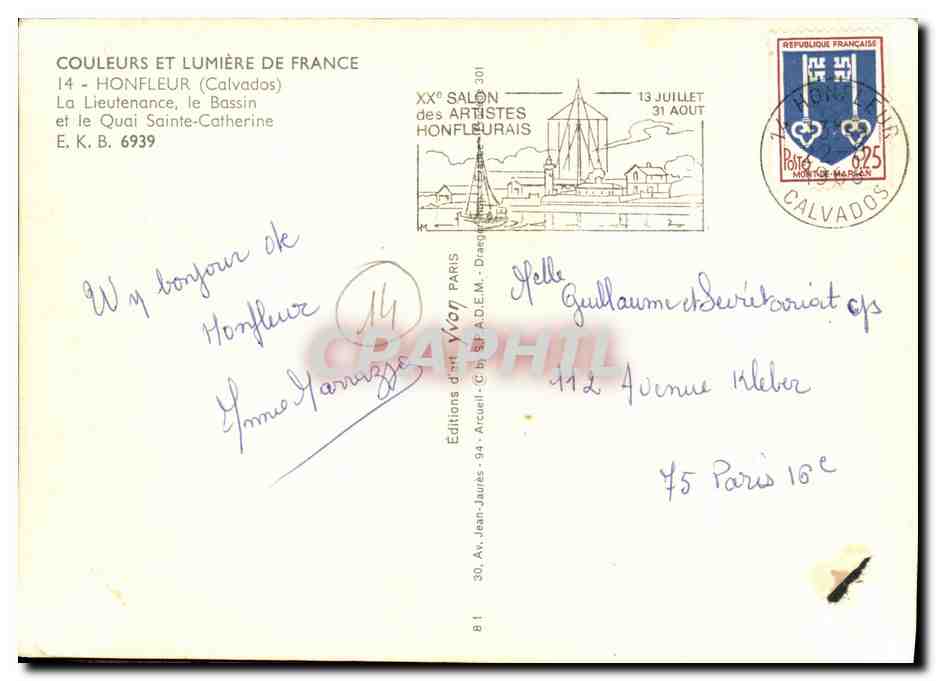 COULEURS ET LUMIÈRE DE FRANCE
14 - HONFLEUR (Calvados)
La Lieutenance, le Bassin
et le Quai Sainte-Catherine
E. K. B. 6939
XXe SALON
des ARTISTES
HONFLEURAIS
13 JUILLET
31 AOUT
REPUBLIQUE FRANÇAISE
POSTES 0,25
MONT-DE-MARSAN
14 HONFLEUR
CALVADOS
bonjour de
Honfleur
14
Annie
Editions d'art Yvon PARIS
30, Av. Jean-Jaurès - 94 - Arcueil - C by S.P.A.D.E.M. - Draeger
301
8 1
Melle
Guillaume et Secrétariat
112 Avenue Kleber
75 Paris 16e
CPAPHIL